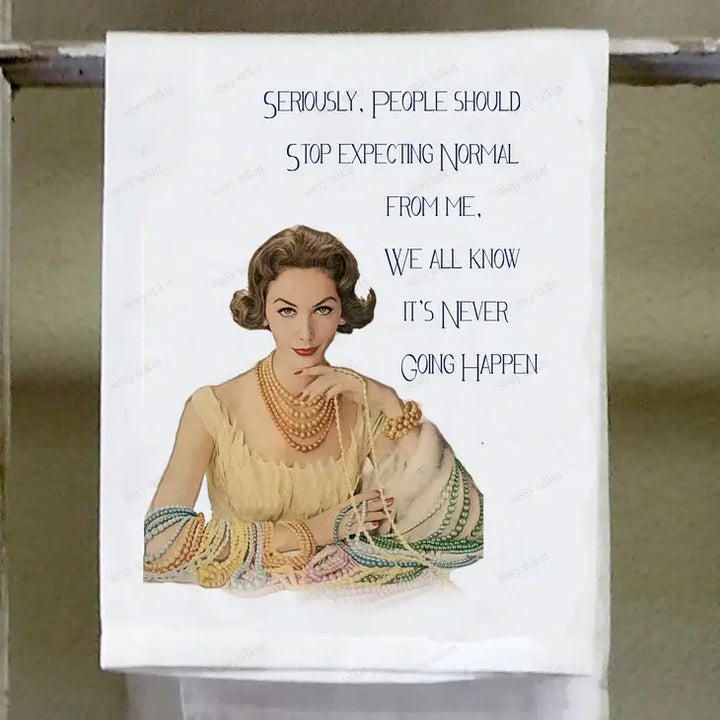 Seriously, People should
Stop expecting Normal
from me,
We all know
it's Never
Going Happen
sassy talkin